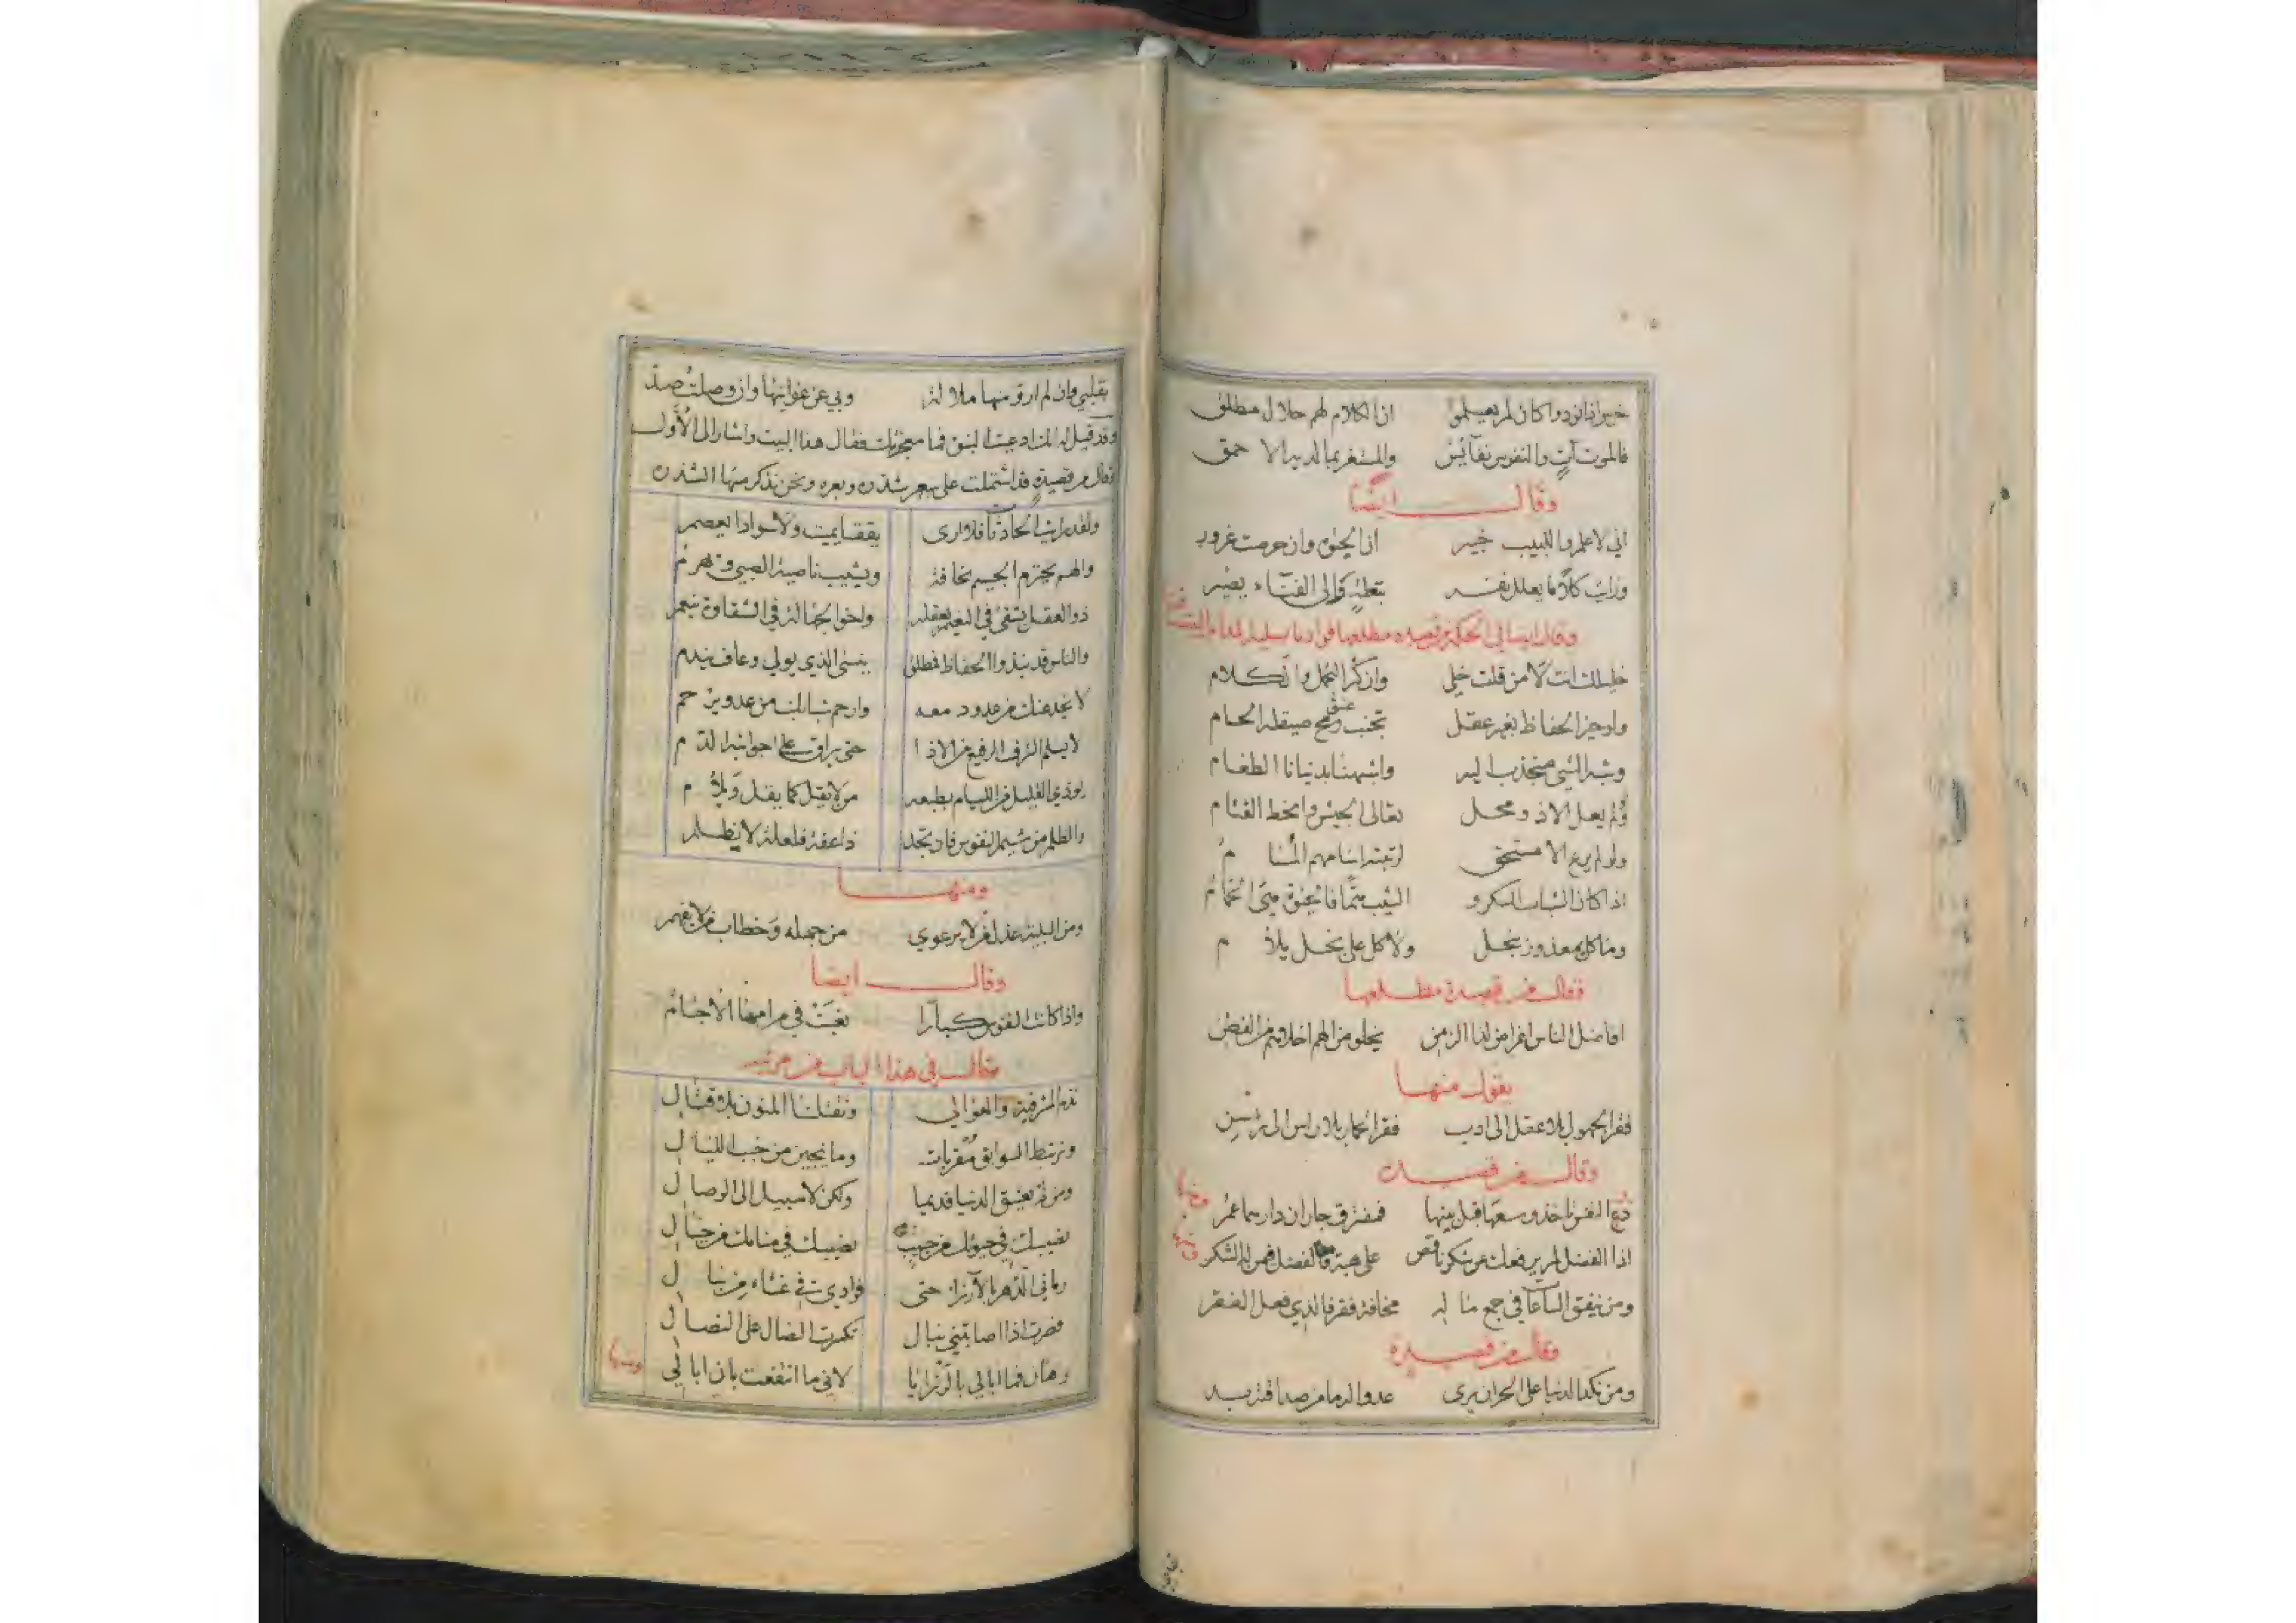 خرس اذا نودوا كان لم يعلموا ان الكلام لهم حلال مطلق
فالموت آتٍ والنفوس نفائس والمستغر بما لديه الاحمق
وقال ايضا
اني لاعلم واللبيب خبير ان الحيوة وان حرصت غرور
ورايت كلاً ما يعلل نفسه بتعلة والى الفناء يصير
وقال ايضا في الحكم من قصيده مطلعها فواد ما يسليه المدام
خليلك انت لا من قلت خلي وان كثر التجمل والكلام
ولو حيز الحفاظ بغير عقل تجنب عنق صيقله الحسام
وشبه الشي منجذب اليه واشبهنا بدنيانا الطغام
ولو لم يعل الا ذو محل تعالى الجيش وانحط القتام
ولو لم يرع الا مستحق لرتبته اسامهم المسام
اذا كان الشباب السكر و الشيب هما فالحيوة هي الحمام
وما كل بمعذور ببخل ولا كل على بخل يلام
وقال من قصيدة مطلعها
افاضل الناس اغراض لذا الزمن يخلو من الهم اخلاهم من الفطن
يقول منها
فقر الجهول بلا عقل الى ادب فقر الحمار بلا راس الى رسن
وقال من قصيده
دع النفس تاخذ وسعها قبل بينها فمفترق جاران دارهما عمر
اذا الفضل لم يرفعك عن شكر ناقص على هبة فالفضل فمن له الشكر
ومن ينفق الساعات في جمع ماله مخافة فقر فالذي فعل الفقر
وقال من قصيدة
ومن نكد الدنيا على الحر ان يرى عدوا له ما من صداقته بد
بقلبي وان لم ارو منها ملالة وبي عن غوانيها وان وصلت صد
وقد قيل له لما ادعيت النبوة فما معجزتك فقال هذا البيت واشار الى الأول
وقال من قصيدة قد اشتملت على شعر شذره وبعره ونحن نذكر منها الشذره
ولقد رايت الحادثات فلا ارى يققا يميت ولا سوادا يعصم
والهم يخترم الجسيم نحافة ويشيب ناصية الصبي ويهرم
ذو العقل يشقى في النعيم بعقله واخو الجهالة في الشقاوة ينعم
والناس قد نبذوا الحفاظ فمطلق ينسى الذي يولى وعاف يندم
لا يخدعنك من عدو دمعه وارحم شبابك من عدو يرحم
لا يسلم الشرف الرفيع من الاذا حتى يراق على جوانبه الدم
يوذي القليل من الليام بطبعه من لا يقل كما يقل ويلؤم
والظلم من شيم النفوس فان تجد ذا عفة فلعلة لا يظلم
ومنها
ومن البلية عذل من لا يرعوي من جهله وخطاب من لا يفهم
وقال ايضا
واذا كانت النفوس كبارا تعبت في مرامها الاجسام
وقال في هذا الباب من مرثيه
نعد المشرفية والعوالي وتقتلنا المنون بلا قتال
ونرتبط السوابق مقربات وما ينجين من خبب الليال
ومن لم يعشق الدنيا قديما ولكن لا سبيل الى الوصال
نصيبك في حيوتك من حبيب نصيبك في منامك من خيال
رماني الدهر بالارزاء حتى فوادي في غشاء من نبال
فصرت اذا اصابتني نبال تكسرت النصال على النصال
وهان فما ابالي بالرزايا لاني ما انتفعت بان ابالي
ومنها